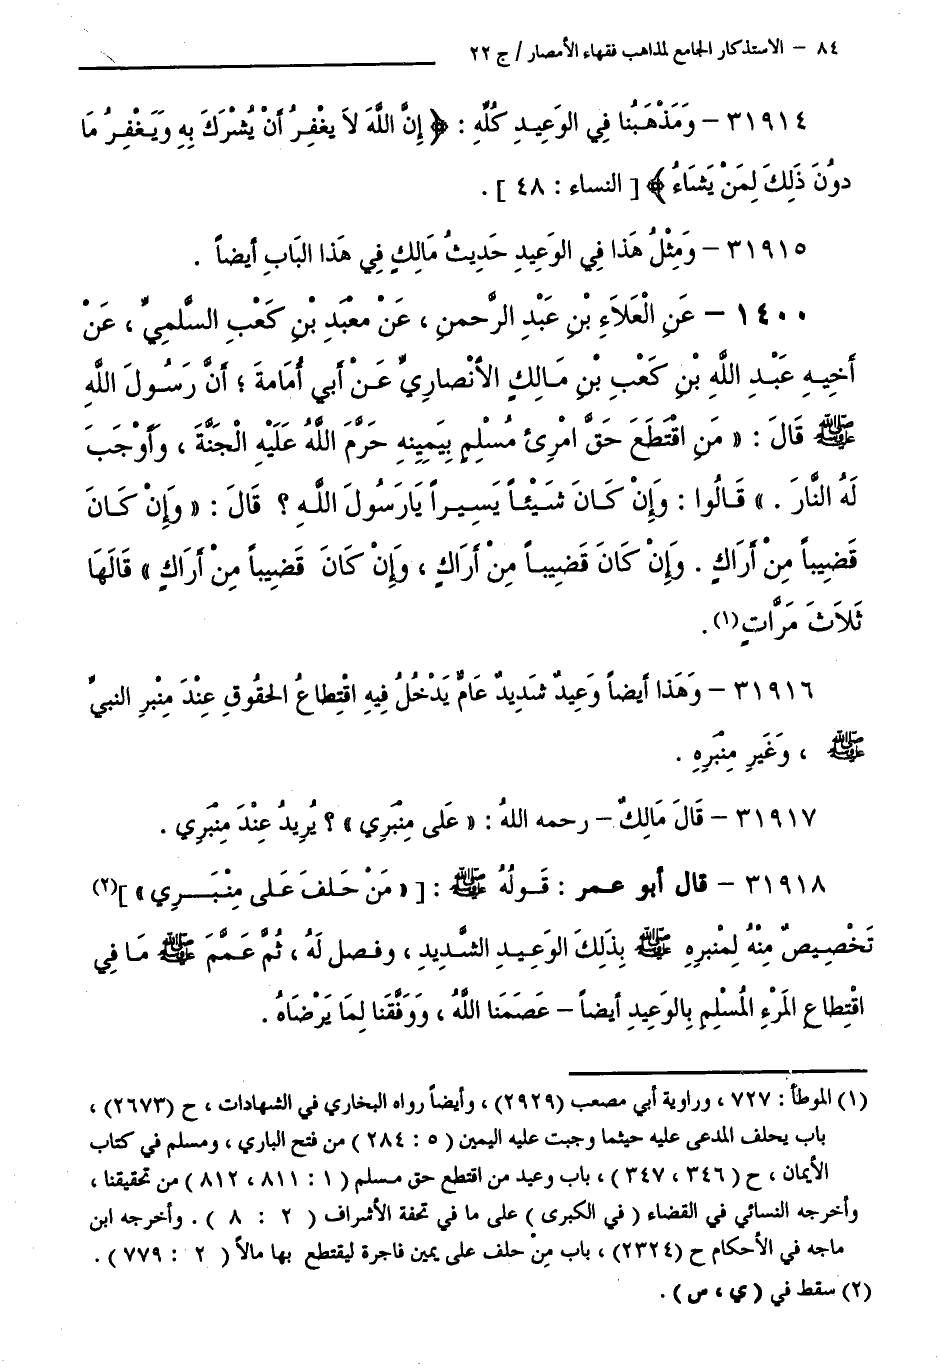 ٨٤ – الاستذكار الجامع لمذاهب فقهاء الأمصار / ج ٢٢
٣١٩١٤ – وَمَذْهَبُنا فِي الوَعِيدِ كُلِّهِ : ﴿ إِنَّ اللَّهَ لاَ يَغْفِرُ أَنْ يُشْرَكَ بِهِ وَيَغْفِرُ مَا
دُونَ ذَلِكَ لِمَنْ يَشَاءُ ﴾ [ النساء : ٤٨ ] .
٣١٩١٥ – وَمِثْلُ هَذا فِي الوَعِيدِ حَدِيثُ مَالِكٍ فِي هَذا البَابِ أيضاً .
١٤٠٠ – عَنِ الْعَلَاءِ بْنِ عَبْدِ الرَّحمنِ ، عَنْ مَعْبَدِ بْنِ كَعْبٍ السَّلَمِيِّ ، عَنْ
أَخِيهِ عَبْدِ اللَّهِ بْنِ كَعْبِ بْنِ مَالِكٍ الأَنْصارِيِّ عَنْ أَبي أُمَامَةَ ؛ أَنَّ رَسُولَ اللَّهِ
ﷺ قَالَ : « مَنِ اقْتَطَعَ حَقَّ امْرِئٍ مُسْلِمٍ بِيَمِينِهِ حَرَّمَ اللَّهُ عَلَيْهِ الْجَنَّةَ ، وَأَوْجَبَ
لَهُ النَّارَ . » قَالُوا : وَإِنْ كَانَ شَيْئاً يَسِيراً يَارَسُولَ اللَّهِ ؟ قَالَ : « وَإِنْ كَانَ
قَضِيباً مِنْ أَرَاكٍ . وَإِنْ كَانَ قَضِيباً مِنْ أَرَاكٍ ، وَإِنْ كَانَ قَضِيباً مِنْ أَرَاكٍ » قَالَهَا
ثَلَاثَ مَرَّاتٍ(١).
٣١٩١٦ – وَهَذا أيضاً وَعِيدٌ شَدِيدٌ عَامٌّ يَدْخُلُ فِيهِ اقْتِطاعُ الحقُوقِ عِنْدَ مِنْبَرِ النبيِّ
ﷺ ، وَغَيرِ مِنْبَرِهِ .
٣١٩١٧ – قَالَ مَالِكٌ – رحمه اللهُ : « عَلَى مِنْبَرِي » ؟ يُرِيدُ عِنْدَ مِنْبَرِي .
٣١٩١٨ – قال أبو عمر : قَولُهُ ﷺ : [ « مَنْ حَلفَ عَلى مِنْبَرِي » ](٢)
تَخْصِيصٌ مِنْهُ لِمِنْبرِهِ ﷺ بِذَلِكَ الوَعِيدِ الشَّدِيدِ ، وفصل لَهُ ، ثُمَّ عَمَّمَ ﷺ مَا فِي
اقْتِطاعِ المَرْءِ المُسْلِمِ بِالوَعِيدِ أيضاً – عَصَمَنا اللَّهُ ، وَوَفَّقَنا لِمَا يَرْضَاهُ .
(١) الموطأ : ٧٢٧ ، وراوية أبي مصعب (٢٩٢٩) ، وأيضاً رواه البخاري في الشهادات ، ح (٢٦٧٣) ،
باب يحلف المدعى عليه حيثما وجبت عليه اليمين ( ٥ : ٢٨٤ ) من فتح الباري ، ومسلم في كتاب
الأيمان ، ح ( ٣٤٦ ، ٣٤٧ ) ، باب وعيد من اقتطع حق مسلم ( ١ : ٨١١ ، ٨١٢ ) من تحقيقنا ،
وأخرجه النسائي في القضاء ( في الكبرى ) على ما في تحفة الأشراف ( ٢ : ٨ ) . وأخرجه ابن
ماجه في الأحكام ح (٢٣٢٤) ، باب مِنْ حلف على يمين فاجرة ليقتطع بها مالاً ( ٢ : ٧٧٩ ) .
(٢) سقط في ( ي ، س ) .